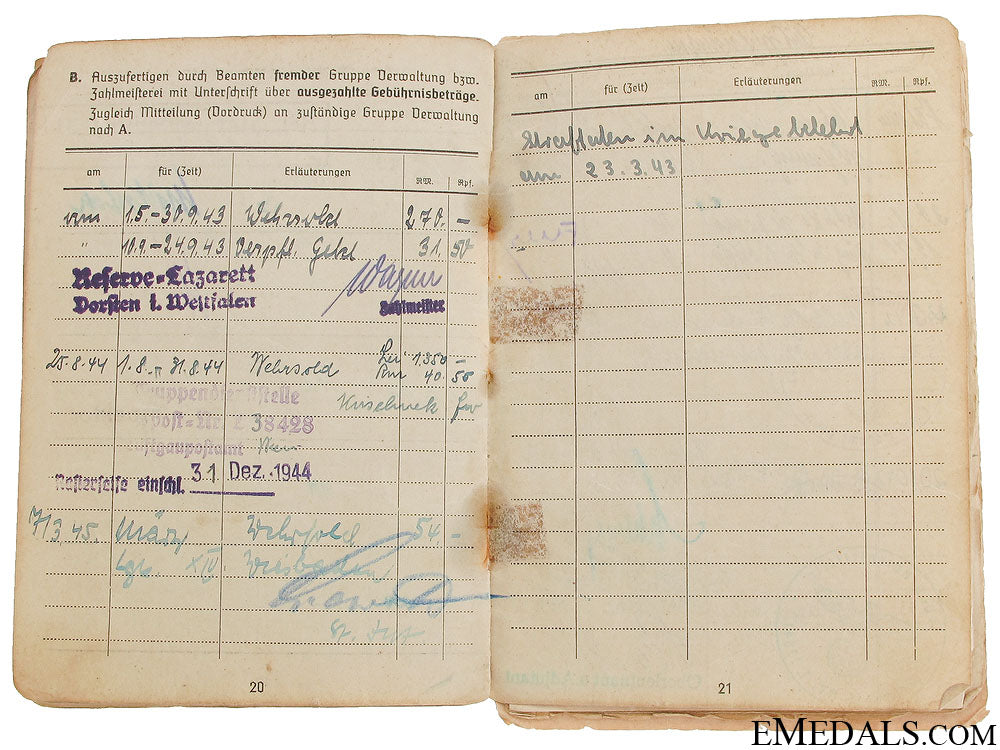 B. Auszufertigen durch Beamten fremder Gruppe Verwaltung bzw.
Zahlmeisterei mit Unterschrift über ausgezahlte Gebührnisbeträge.
Zugleich Mitteilung (Vordruck) an zuständige Gruppe Verwaltung
nach A.
am für (Zeit) Erläuterungen RM. Rpf.
1.5.-30.9.43 Wehrsold 270. –
" 10.9.-24.9.43 Verpfl. Geld 31. 50
Reserve-Lazarett
Dorsten i. Westfalen
Wagner
Zahlmeister
25.8.44 1.8.-31.8.44 Wehrsold Lei 1350 –
40. 50
38428
31 Dez. 1944
einschl.
7/3.45. März Wehrsold 54 –
XIV Wiesbaden
20
am für (Zeit) Erläuterungen RM. Rpf.
Straftaten im Kriege belehrt
am 23.3.43
21
eMedals.com